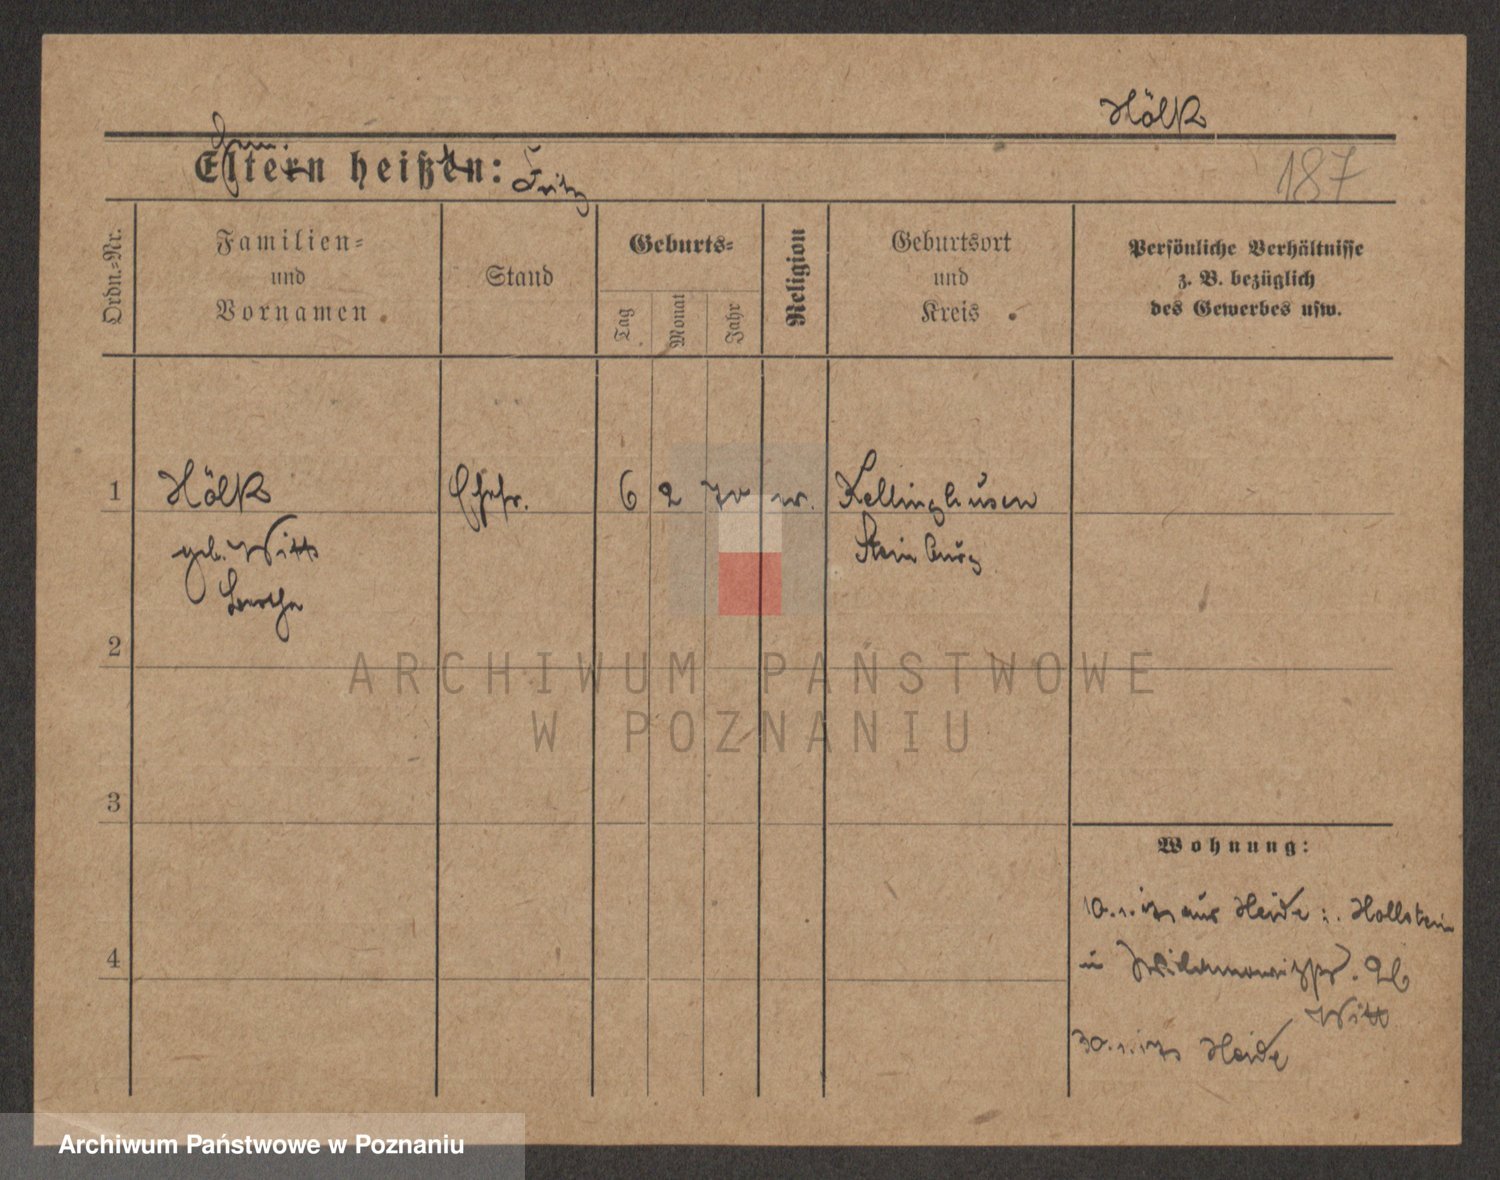 Hölk
187
Eltern heißen: Fritz
Ordn.-Nr.
Familien-
und
Vornamen
Stand
Geburts-
Tag
Monat
Jahr
Religion
Geburtsort
und
Kreis
Persönliche Verhältnisse
z. B. bezüglich
des Gewerbes usw.
1
Hölk
Ehefr.
6
2
70
ev.
Kellinghusen
geb. Witt
Steinburg
Bertha
2
ARCHIWUM PAŃSTWOWE
W POZNANIU
3
Wohnung:
aus Heide i. Hollstein
4
26
Witt
Heide
Archiwum Państwowe w Poznaniu